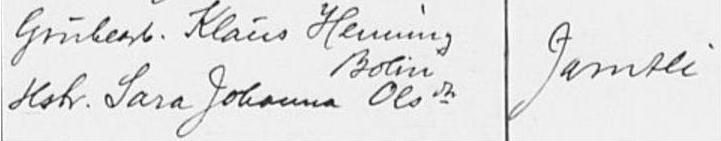 Grubearb. Klaus Henning
Bolin
Hstr. Sara Johanna Olsdtr
Jamtli